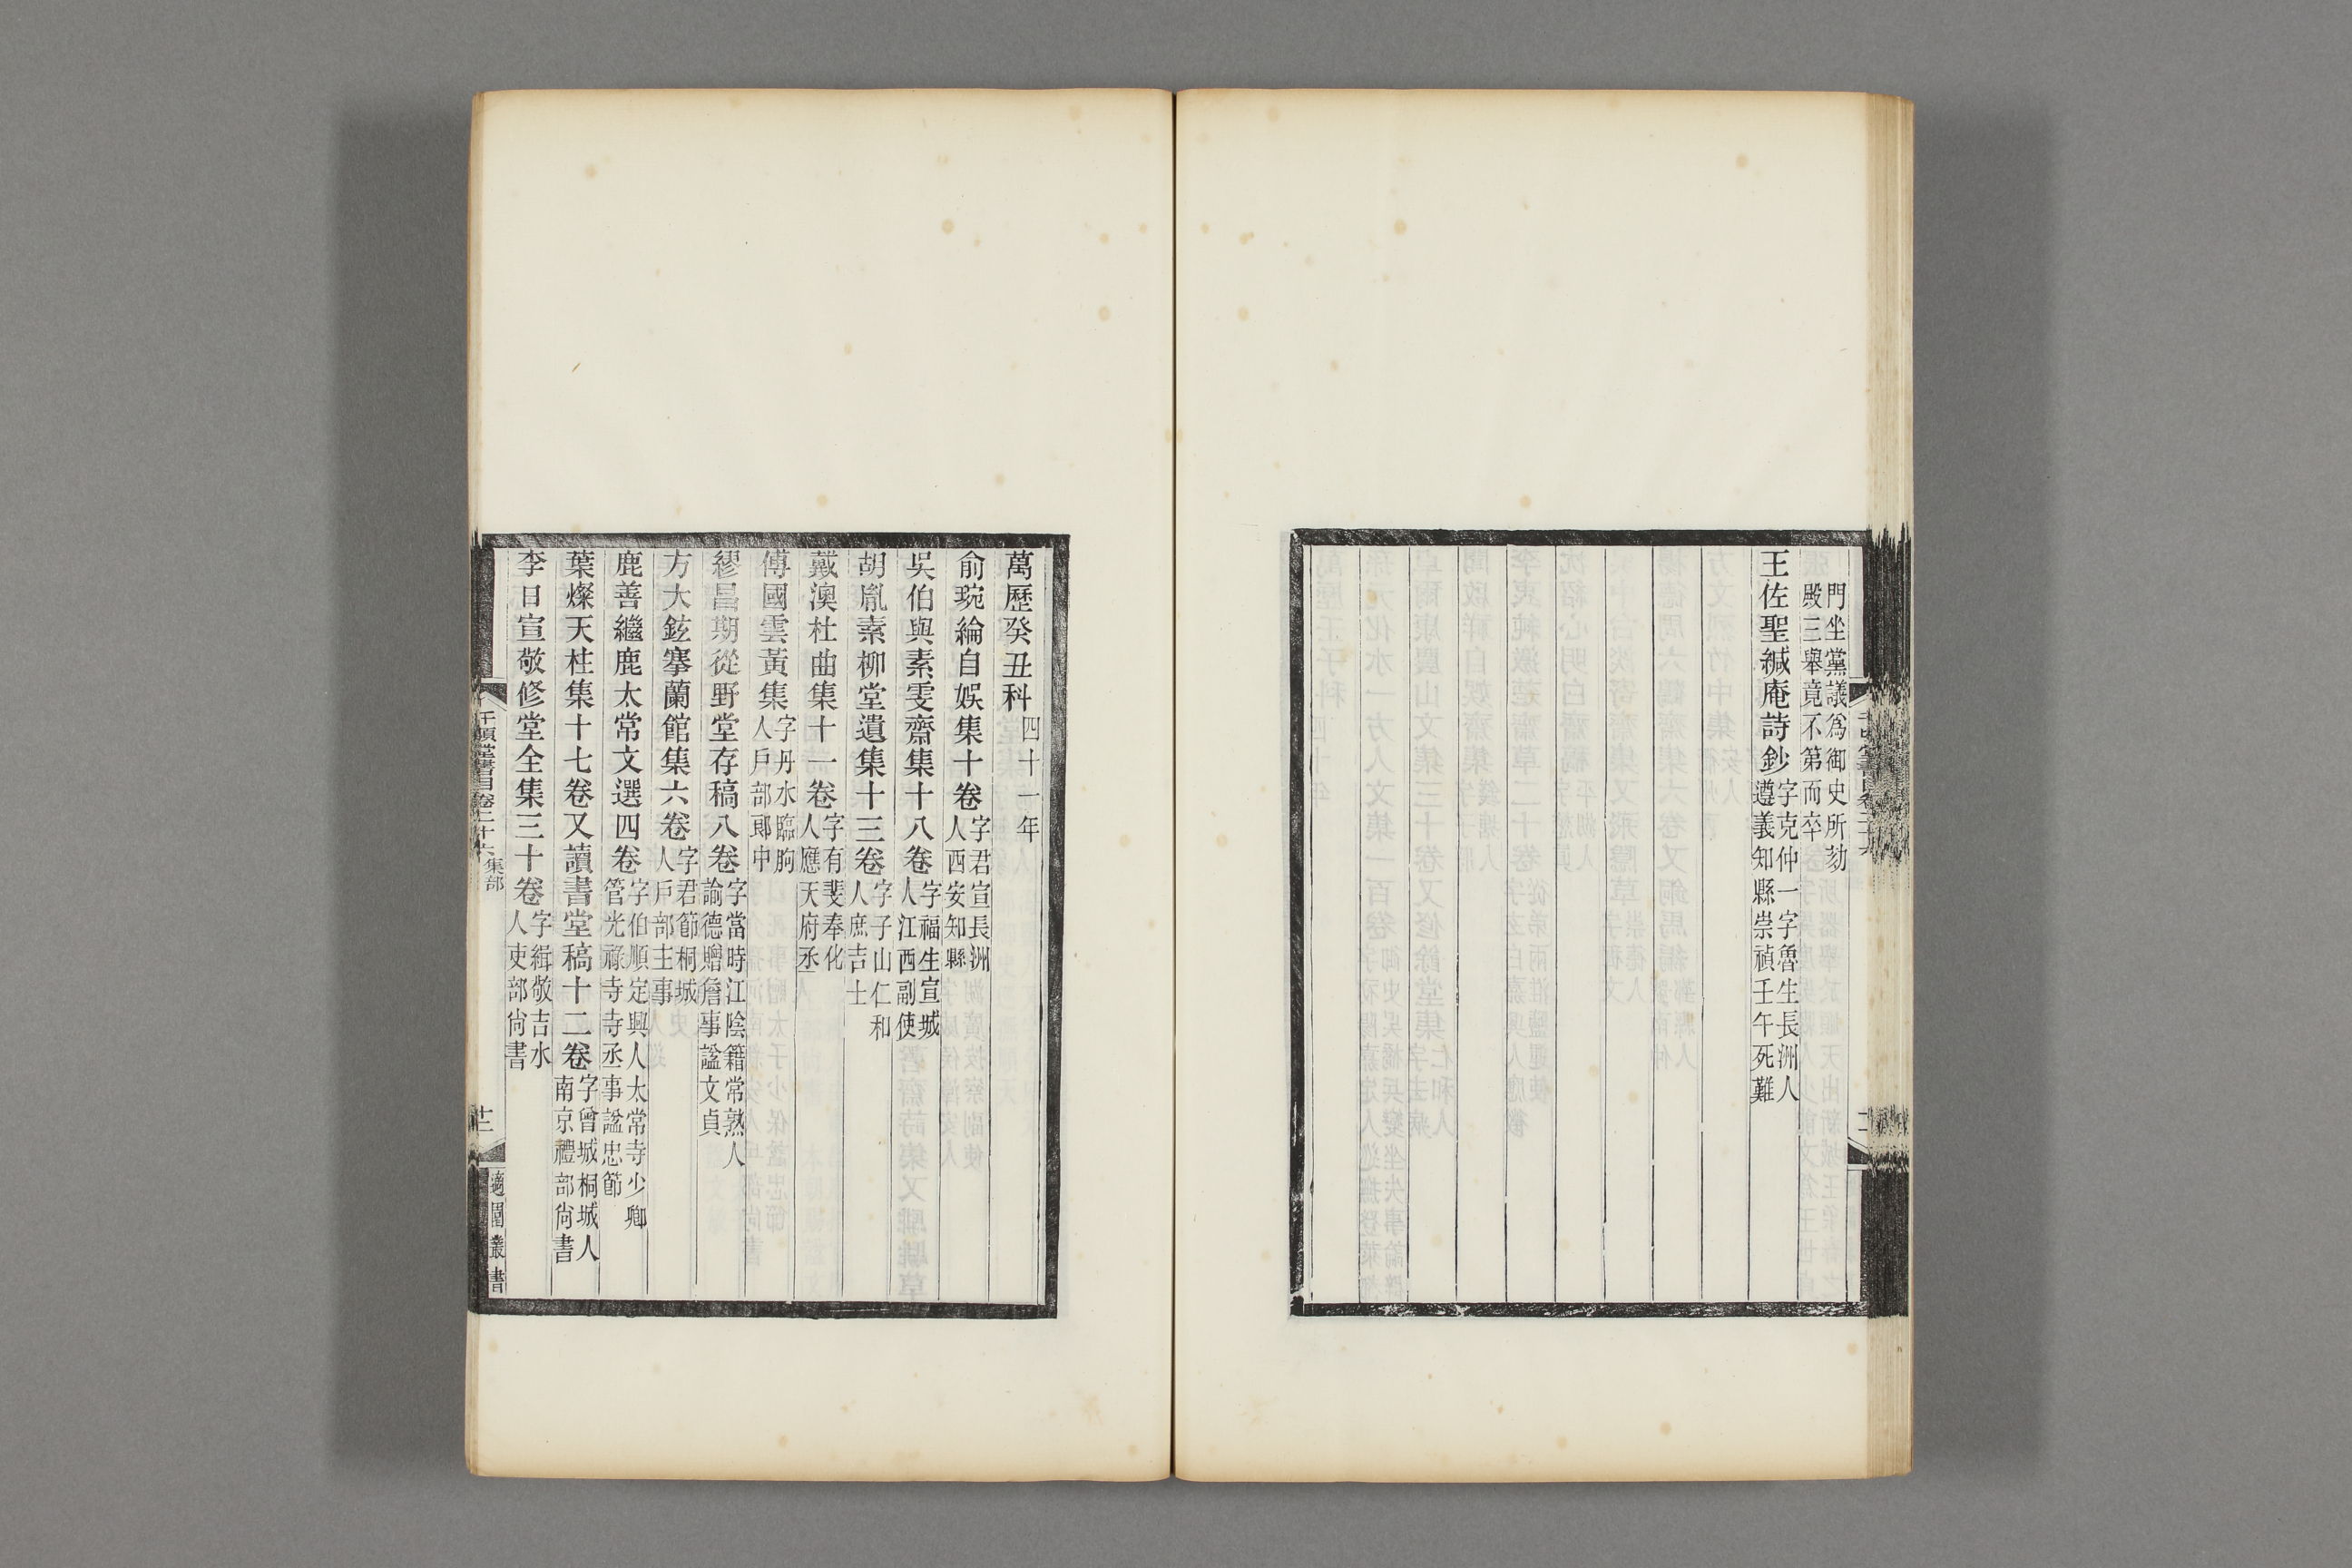 門坐黨議爲御史所劾
殿三舉竟不第而卒
王佐聖緘庵詩鈔字克仲一字魯生長洲人
遵義知縣崇禎壬午死難
萬歷癸丑科四十一年
俞琬綸自娛集十卷字君宣長洲
人西安知縣
吳伯與素雯齋集十八卷字福生宣城
人江西副使
胡胤素柳堂遺集十三卷字子山仁和
人庶吉士
戴澳杜曲集十一卷字有斐奉化
人應天府丞
傅國雲黃集字丹水臨朐
人戶部郎中
繆昌期從野堂存稿八卷字當時江陰籍常熟人
諭德贈詹事諡文貞
方大鉉搴蘭館集六卷字君節桐城
人戶部主事
鹿善繼鹿太常文選四卷字伯順定興人太常寺少卿
管光祿寺寺丞事諡忠節
葉燦天柱集十七卷又讀書堂稿十二卷字曾城桐城人
南京禮部尙書
李日宣敬修堂全集三十卷字緝敬吉水
人吏部尙書
千頃堂書目卷二十六集部
十二
適園叢書